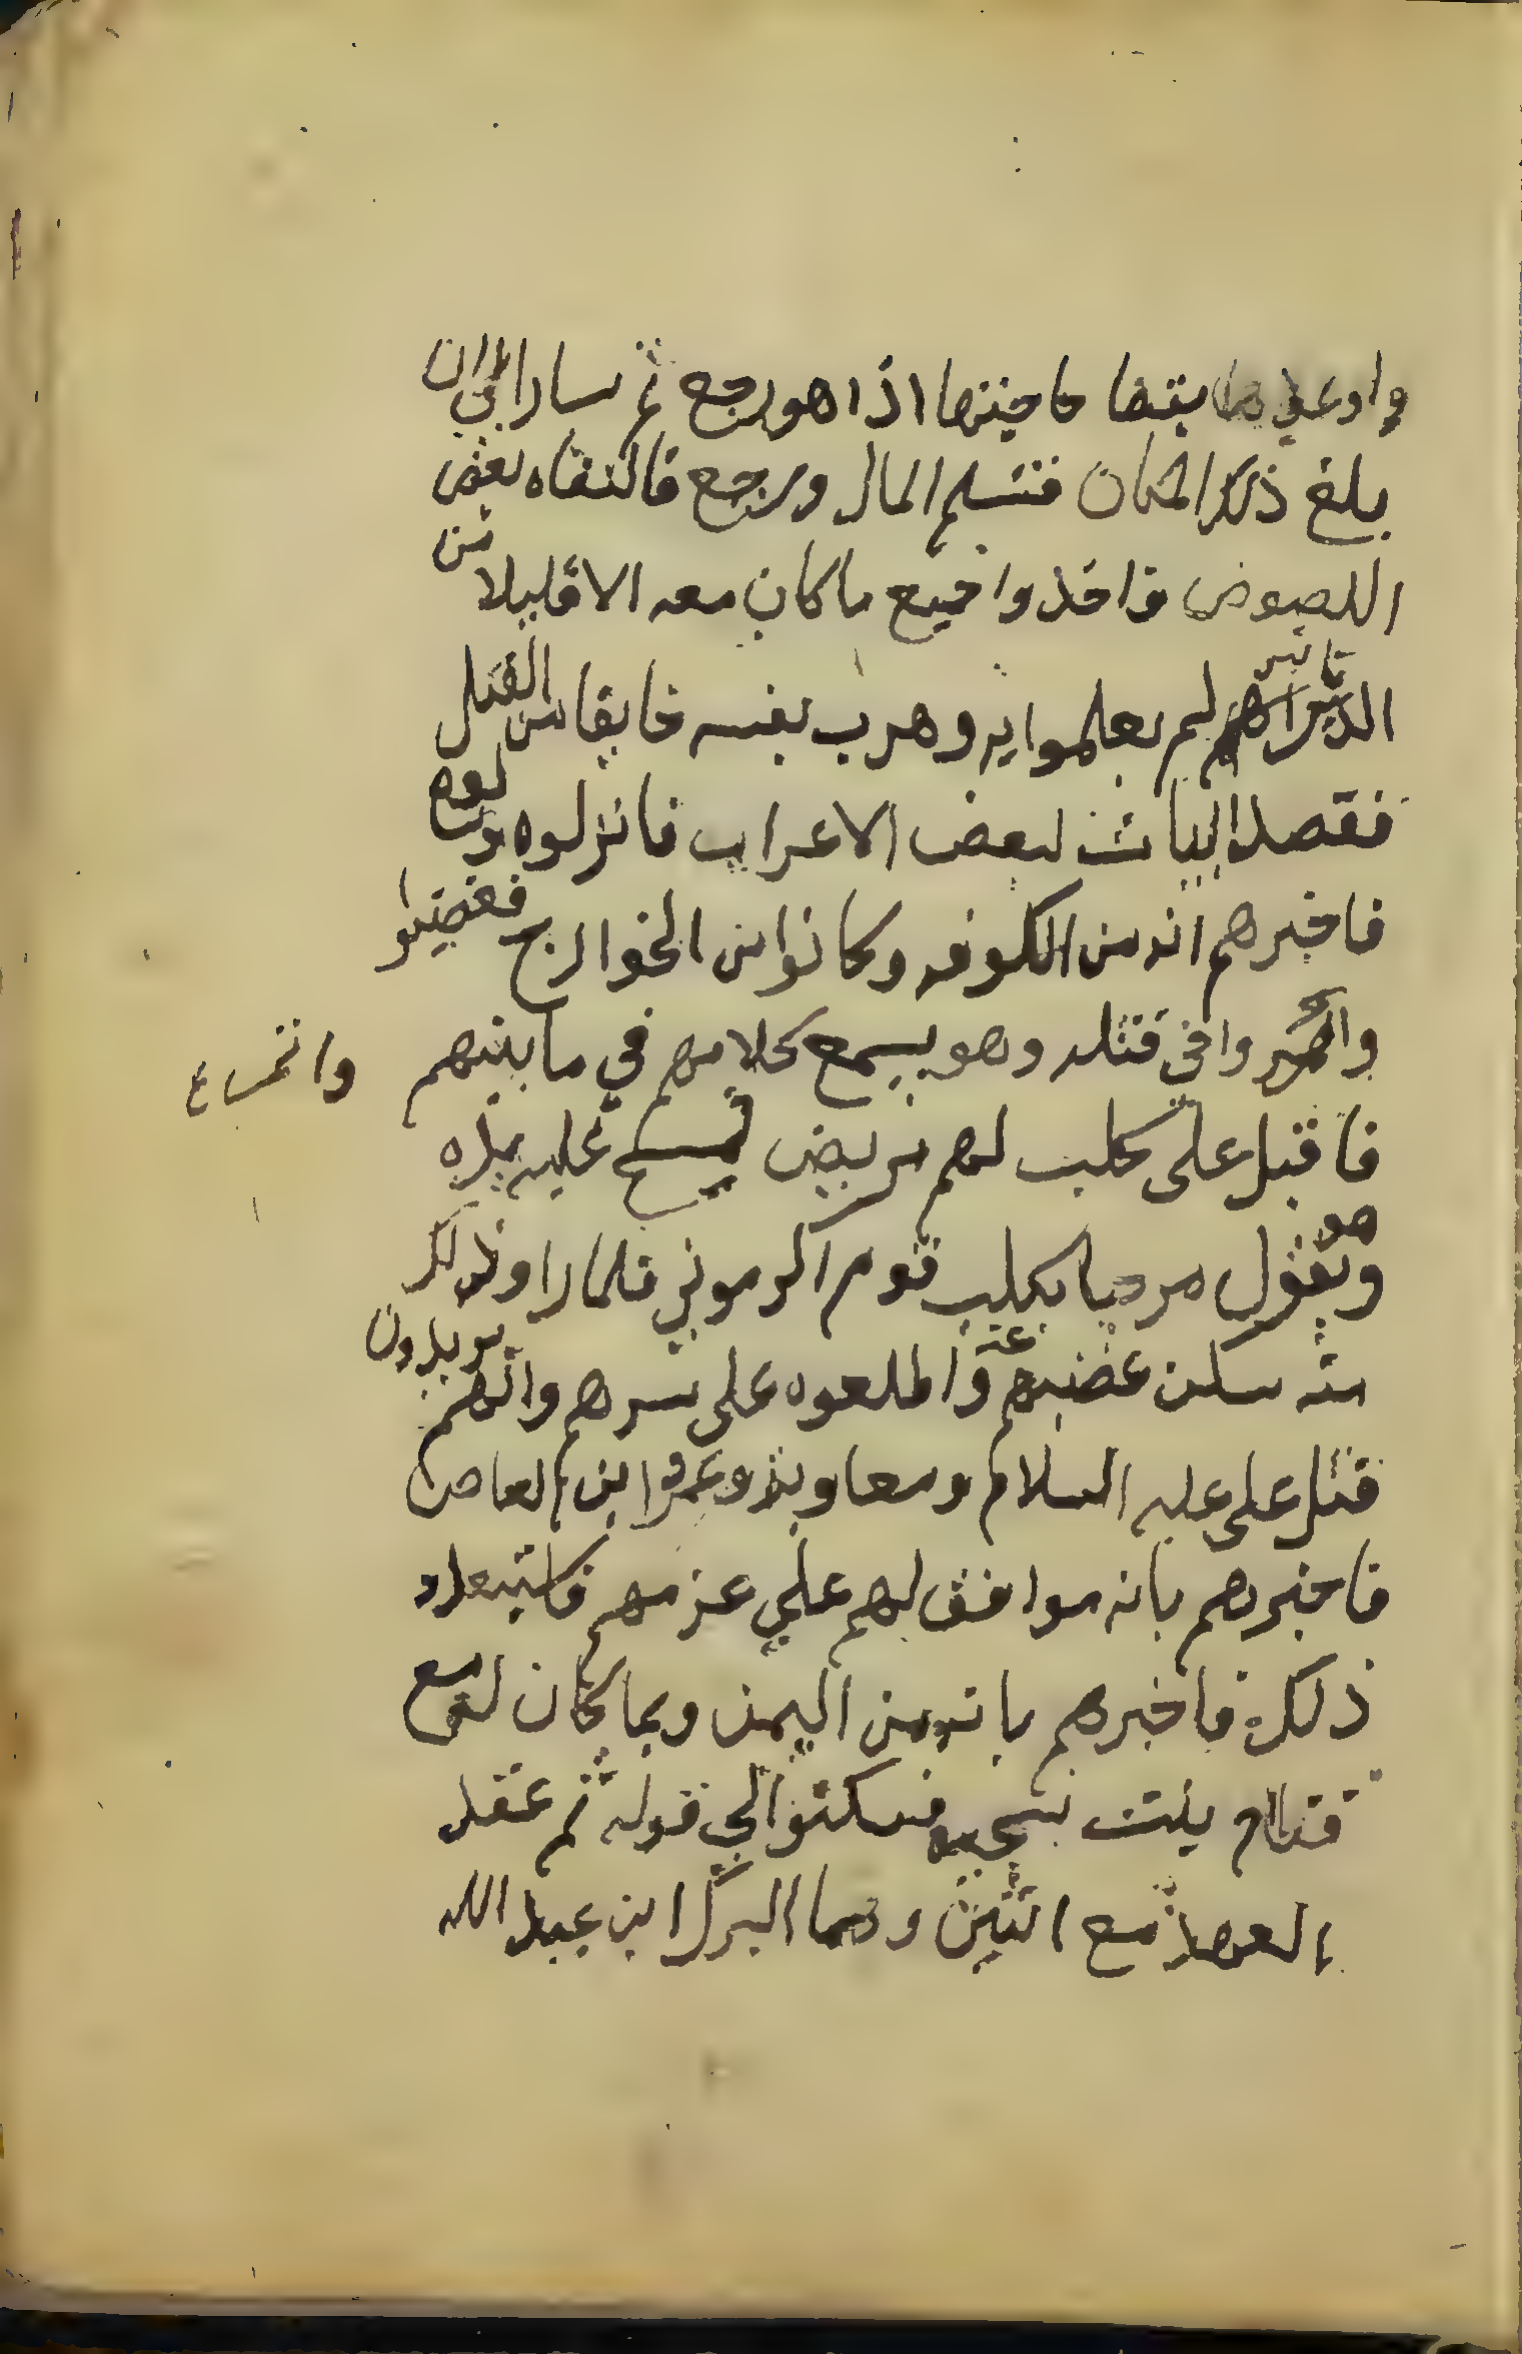 واوعدها بقضا حاجتها اذا هو رجع ثم سار الى ان
بلغ ذلك المكان فتسلم المال ورجع فالتقاه بعض
اللصوص فاخذوا جميع ما كان معه الا قليلا من
الدنانير لم يعلموا به وهرب بنفسه خايفا من القتل
فقصد ابيات لبعض الاعراب فانزلوه وسالوه
فاخبرهم انه من الكوفه وكانوا من الخوارج فغضبوا
واضمروا في قتله وهو يسمع كلامهم في ما بينهم
فاقبل على كلب لهم مربض يمسح عليه بيده
وهو يقول مرحبا بكلب قوم اكرموني فلما راو ذلك
منه سكن غضبهم عنه واطلعوه على سرهم وانهم يريدون
قتل علي عليه السلام ومعاويه وعمرو ابن العاص
فاخبرهم بانه موافق لهم على عزمهم فاستبعدو
ذلك فاخبرهم بانه من اليمن وبما كان له مع
قتام بنت فسكنو الى قوله ثم عقد
العهد مع اثنين وهما البرك ابن عبد الله